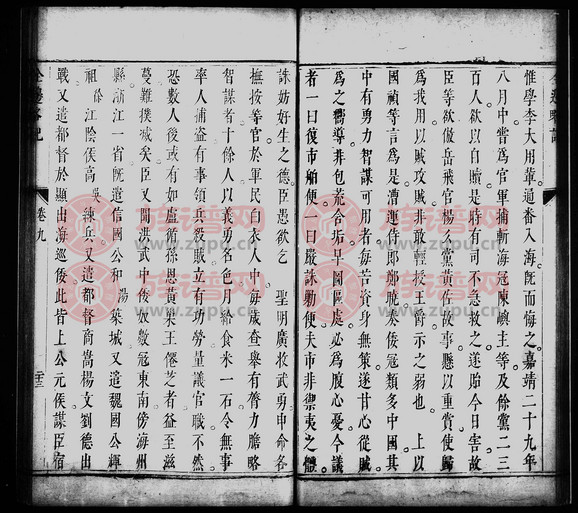 惟學李大用軰通番入海旣而悔之嘉靖二十九年
八月中嘗爲官軍捕斬海冦陳嶼主等及餘黨二三
百人欲以自贖是時有司不急救之遂貽今日害故
臣等欲倣岳飛官楊么黨黃佐故事懸以重賞使歸
爲我用以賊攻賊非敢輕授王爵示之弱也 上以
國禎等言爲是漕運侍郎鄭曉奏倭冦類多中國其
中有勇力智謀可用者每苦資身無策遂甘心從賊
爲之嚮導非包荒含垢早圖區處必爲腹心憂今議
者一曰復市舶便一曰嚴誅勦便夫市非禦夷之體
誅妨好生之德臣愚欲乞 聖明廣收武勇申命各
撫按等官於軍民白衣人中每歲查舉有膂力膽略
智謀者十餘人以義勇名色月給食米一石令無事
率人捕盗有事領兵殺賊立有功勞量議官職不然
恐數人後或有如盧循孫恩黃巢王僊芝者益至滋
蔓難撲㓕矣臣又聞洪武中倭奴數冦東南傍海州
縣浙江一省旣遣信國公和湯築城又遣魏國公輝
祖徐江陰侯高吳練兵又遣都督商暠楊文劉德出
戰又遣都督於顯出海巡倭此皆上公元侯謀臣宿
卷九
二十三
www.zupu.cn